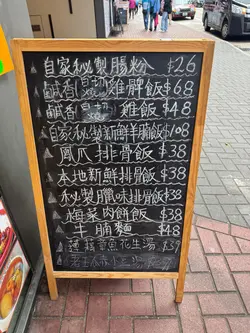 自家秘製腸粉 $26
鹹香 雞髀飯 $68
鹹香 雞飯 $48
自家秘製新鮮羊腩飯$108
鳳爪排骨飯 $38
本地新鮮排骨飯 $38
秘製臘味排骨飯 $38
梅菜肉餅飯 $38
牛腩麵 $48
蓮藕章魚花生湯 $39
$38